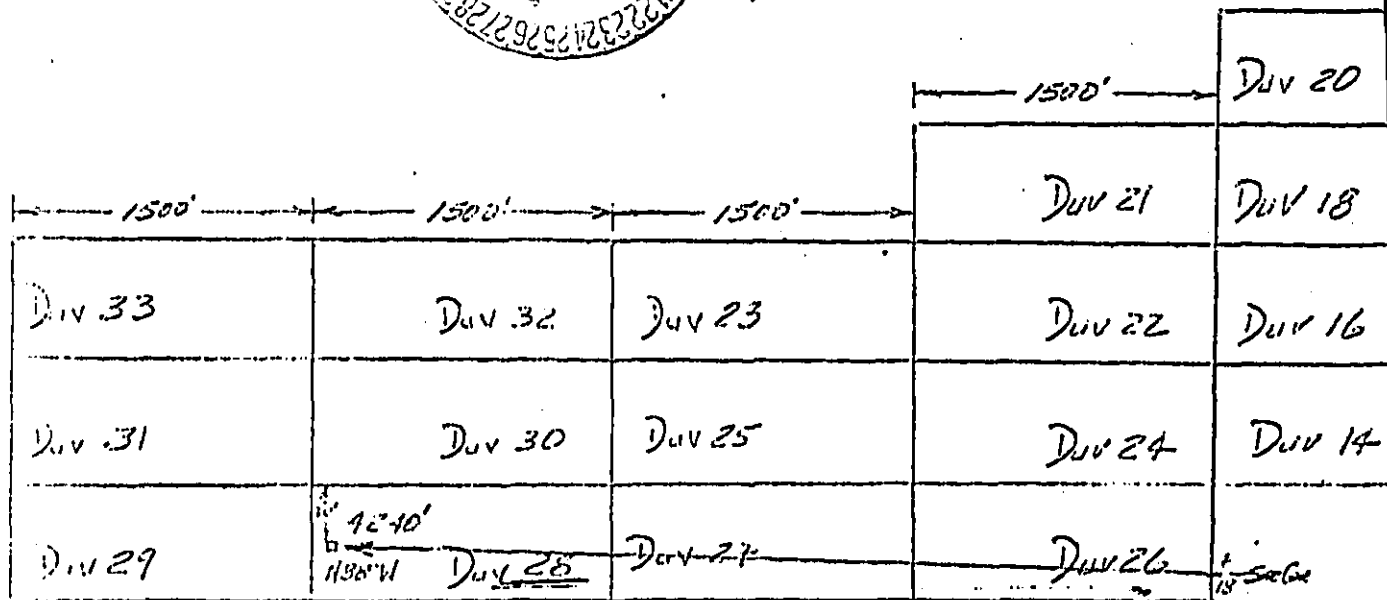 1500'
Duv 20
1500' 1500' 1500'
Duv 21 Duv 18
Duv 33 Duv 32 Duv 23 Duv 22 Duv 16
Duv 31 Duv 30 Duv 25 Duv 24 Duv 14
Duv 29 Duv 28 Duv 27 Duv 26